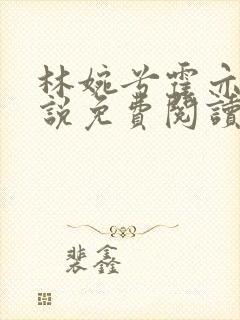 林婉兮霍亦
說免費閱讀
裴鑫